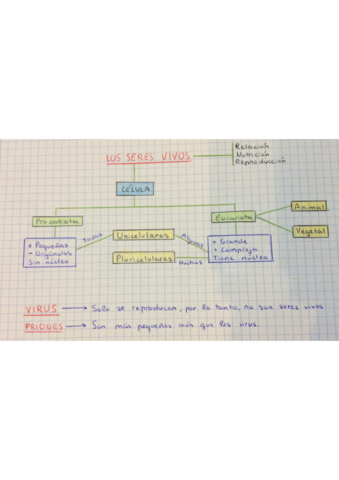 LOS SERES VIVOS
Relación
Nutrición
Reproducción
CÉLULA
Procariota
Eucariota
Animal
Vegetal
+ Pequeñas
- Orgánulos
Sin núcleo
Todas
Unicelulares
Algunas
Pluricelulares
Muchas
+ Grande
+ Compleja
Tiene núcleo
VIRUS → Solo se reproducen, por lo tanto, no son seres vivos.
PRIONES → Son más pequeños aún que los virus.